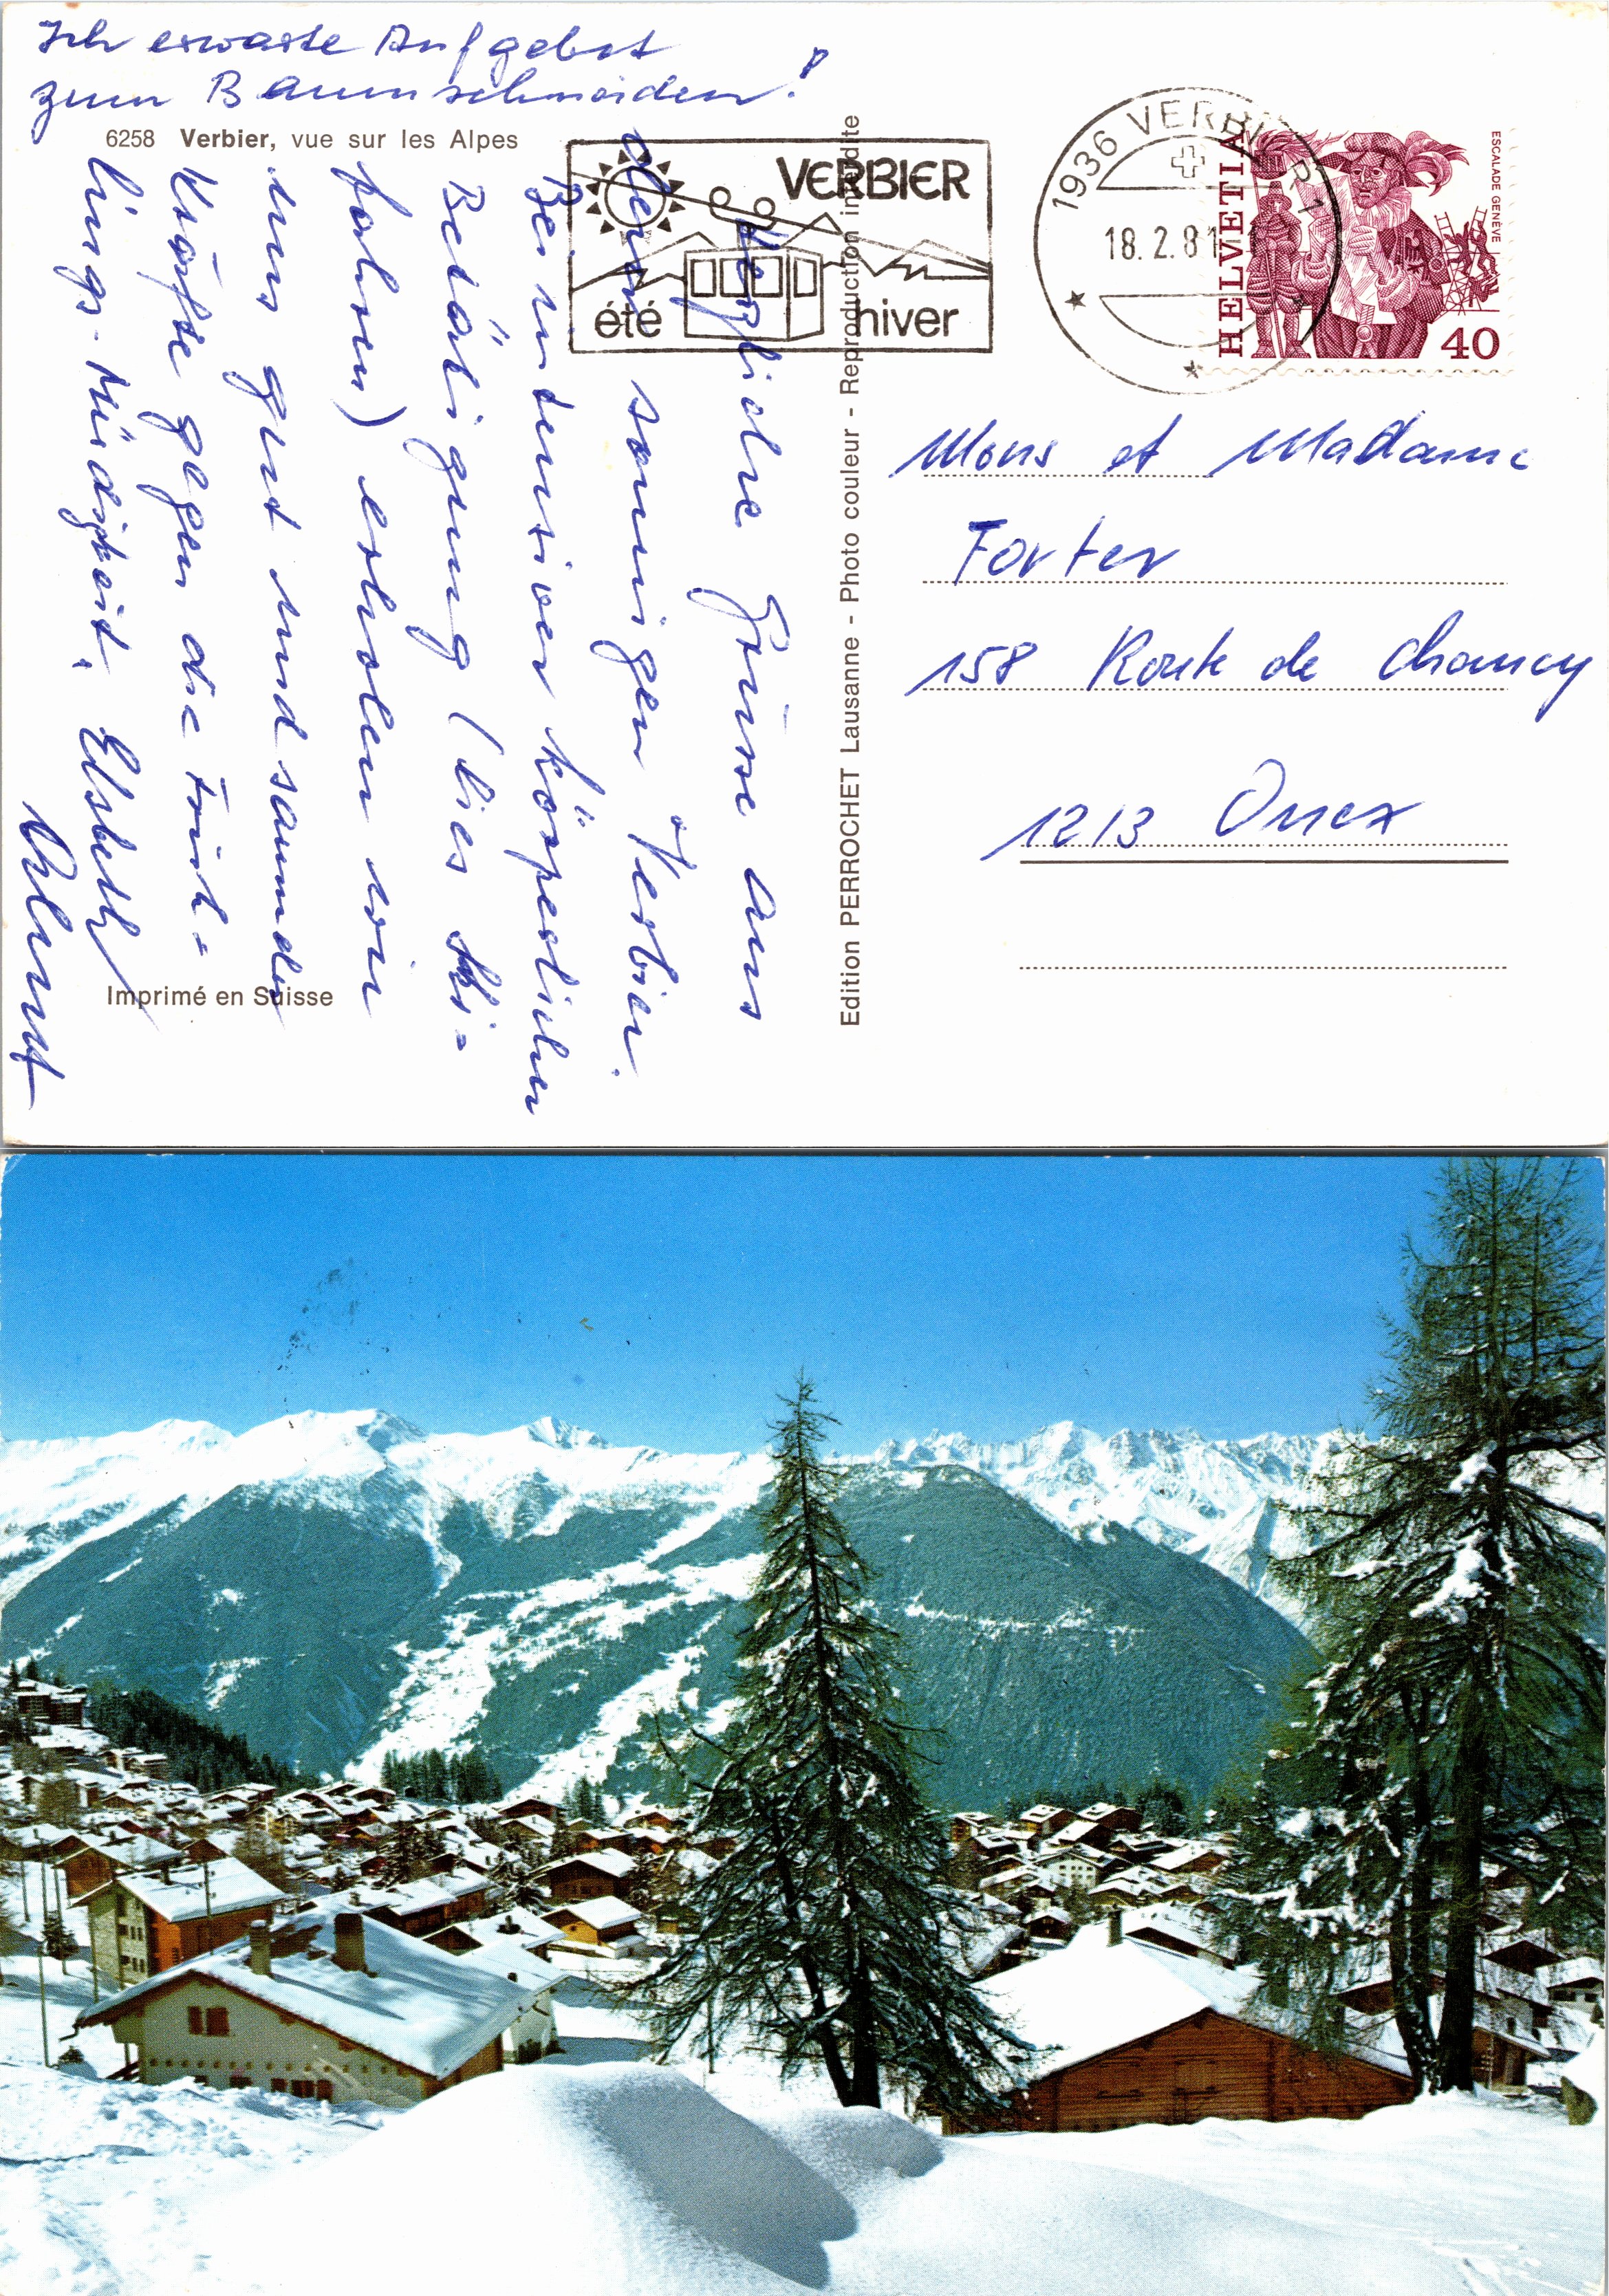 Ich erwarte Aufgebot
zum Baumschneiden!
6258 Verbier, vue sur les Alpes
Herzliche Grüsse aus
dem sonnigen Verbier.
Bei intensiver körperlicher
Betätigung (lies Ski=
fahren) erholen wir
uns gut und sammeln
Kräfte gegen die Früh=
lings-Müdigkeit. Elsbeth
Imprimé en Suisse
Edition PERROCHET Lausanne - Photo couleur - Reproduction interdite
VERBIER
été hiver
1936 VERBIER 1
18.2.81
HELVETIA
ESCALADE GENÈVE
40
Mons et Madame
Forter
158 Route de Chancy
1213 Onex